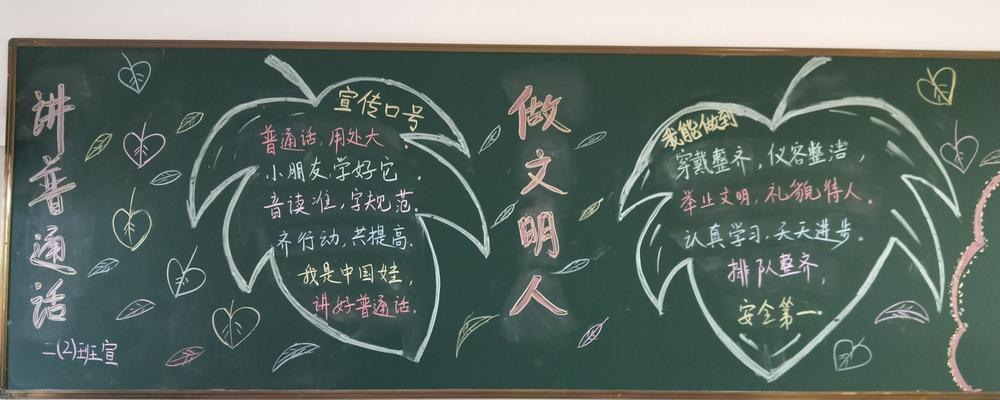 讲普通话
二(2)班宣
宣传口号
普通话,用处大。
小朋友,学好它。
音读准,字规范。
齐行动,共提高。
我是中国娃,
讲好普通话.
做文明人
我能做到
穿戴整齐,仪容整洁,
举止文明,礼貌待人。
认真学习,天天进步.
排队整齐,
安全第一.